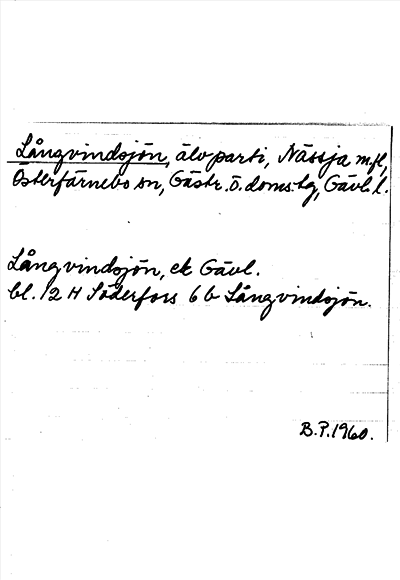 Långvindsjön, älvparti, Nässja m.fl,
Österfärnebo sn, Gästr. ö. doms:tg, Gävl. l.
Långvindsjön, ek Gävl.
bl. 12 H Söderfors 6 b Långvindsjön.
B.P. 1960.